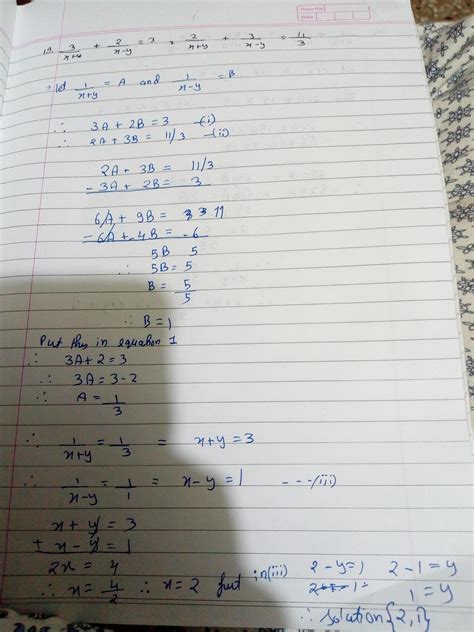 Page No.
Date
19. 3/(x+y) + 2/(x-y) = 3, 2/(x+y) + 3/(x-y) = 11/3
let 1/(x+y) = A and 1/(x-y) = B
∴ 3A + 2B = 3 —(i)
∴ 2A + 3B = 11/3 —(ii)
2A + 3B = 11/3
- 3A + 2B = 3
6A + 9B = 11
- 6A + -4B = -6
5B 5
∴ 5B = 5
B = 5/5
∴ B = 1
Put this in equation 1
∴ 3A + 2 = 3
∴ 3A = 3 - 2
∴ A = 1/3
∴ 1/(x+y) = 1/3 = x+y = 3
∴ 1/(x-y) = 1/1 = x-y = 1 ---(iii)
x + y = 3
± x - y = 1
2x = 4
∴ x = 4/2 ∴ x = 2 put in (iii) 2-y=1 2-1=y
1=y
∴ Solution {2,1}